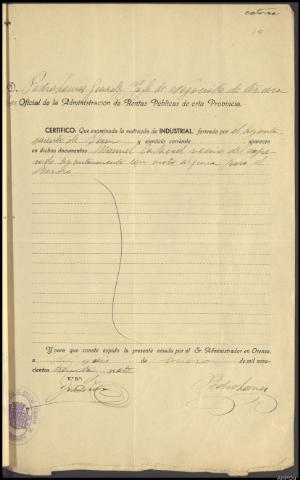 catorce
D. Pedro Lamas González Jefe de negociado de tercera
Oficial de la Administración de Rentas Públicas de esta Provincia.
CERTIFICO: Que examinada la matrícula de INDUSTRIAL, formada por el ayunta-
miento de y ejercicio corriente aparecen
en dichos documentos Manuel vecino del expre-
sado Ayuntamiento con cuota alguna para el
Tesoro
Y para que conste expido la presente visada por el Sr. Administrador en Orense,
a de enero de mil nove-
cientos treinta y siete
V.º B.º
Pedro Lamas